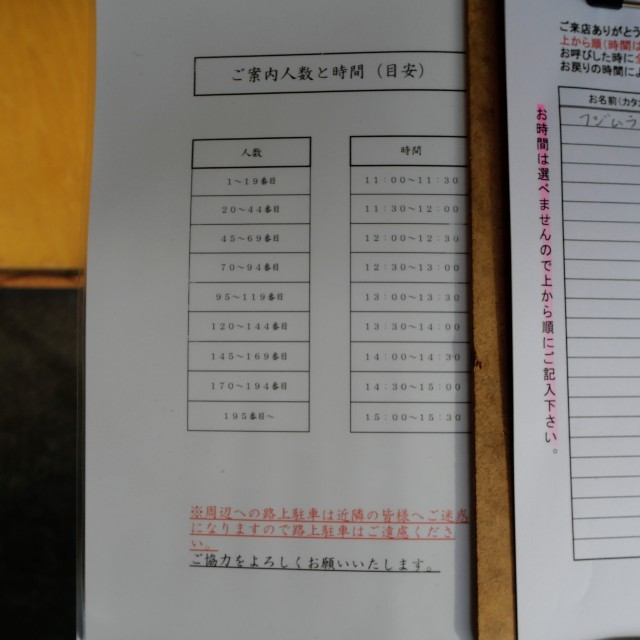 ご案内人数と時間（目安）
人数 時間
1～19番目 11：00～11：30
20～44番目 11：30～12：00
45～69番目 12：00～12：30
70～94番目 12：30～13：00
95～119番目 13：00～13：30
120～144番目 13：30～14：00
145～169番目 14：00～14：30
170～194番目 14：30～15：00
195番目～ 15：00～15：30
※周辺への路上駐車は近隣の皆様へご迷惑
になりますので路上駐車はご遠慮くださ
い。
ご協力をよろしくお願いいたします。
ご来店ありがとう
上から順（時間は
お呼びした時に
お戻りの時間に
お名前（カタ
フジムラ
お時間は選べませんので上から順にご記入下さい。